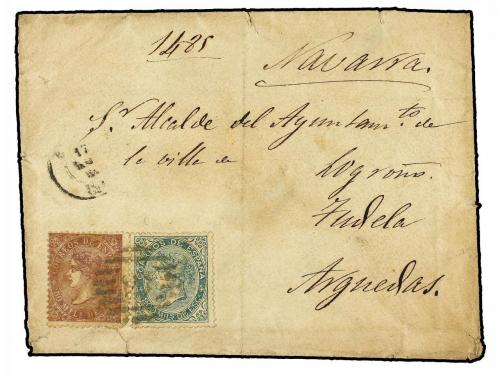 1485
Navarra.
Sr Alcalde del Ayuntamto. de
la villa de
Logroño.
Tudela
Arguedas.
17
CORREOS DE ESPAÑA